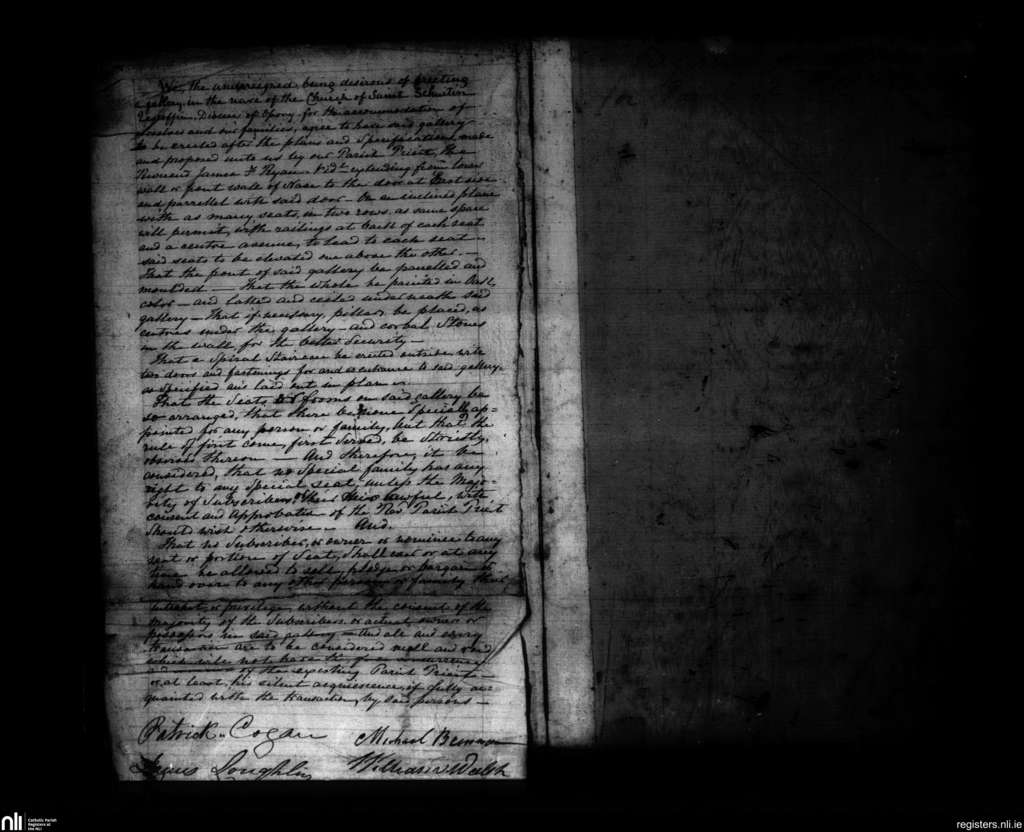 We, the undersigned, being desirous of Erecting
a gallery in the nave of the Church of Saint
Diocese of Ossory, for the accommodation of
ourselves and our families, agree to have said gallery
to be erected after the plans and Specifications, made
and proposed unto us by our Parish Priest, the
Reverend James F Ryan extending from tower
wall or front wall of Nave to the door at East side
and parrellel with said door. On an inclined plane
with as many seats, in two rows, as same space
will permit, with railings at back of each seat
and a centre avenue, to lead to each seat
said seats to be elevated one above the other.—
That the front of said gallery be panelled and
moulded — That the whole be painted in Oak
color — and latted and ceiled underneath said
gallery — That if necessary, pillars be placed, as
centres under the gallery — and corbal Stones
in the wall, for the better Security —
That a Spiral Staircase be erected outside with
two doors and fastenings for and as entrance to said gallery
as Specified and laid out in plan
That the Seats forms on said gallery be
so arranged, that there be none Specially ap=
pointed for any person or family, but that the
rule of first come, first Served, be Strictly
observed thereon — And therefore, it be
considered, that no Special family has any
right to any Special seat, unless the Majo-
rity of Subscribers lawful, with
consent and approbation of the Parish Priest
Should wish otherwise — And.
That no Subscriber, or owner or nominee to any
seat or portion of Seat, Shall ever or at any
time be allowed to sell, pledge or bargain or
hand over to any other person or family that
interest, or privilege, without the consent of the
majority of the Subscribers or actual owners or
possessors in said gallery — And all and every
transaction are to be considered null and void
which will not have the concurrence
and of the existing Parish Priest —
or at least, his silent acquiescence, if fully ac
quainted with the transaction, by said persons —
Patrick Cogan
Michael
Loughlin
William Walsh
nli
Catholic Parish
Registers at
the NLI
registers.nli.ie